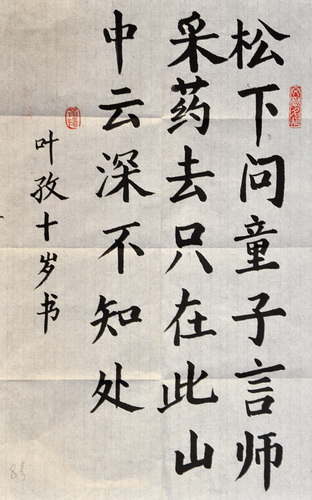 松下问童子言师
采药去只在此山
中云深不知处
叶孜十岁书